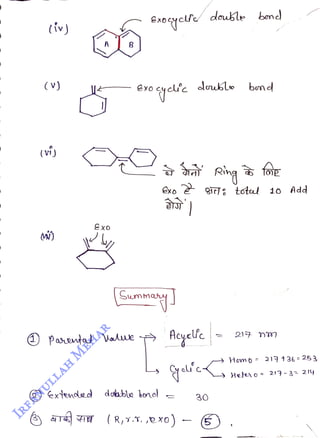 (iv)
Exocyclic double bond
A B
(v)
Exo cyclic double bond
(vi)
ये दोनों Ring के लिए
Exo है अतः total 10 Add
होंगे |
Exo
(vii)
Summary
① Parental Value → Acyclic = 217 nm
Cyclic → Homo = 217 + 36 = 253
→ Hetero = 217 - 3 = 214
② Extended double bond = 30
③ बाकी सब (R, r.r., exo) - ⑤
IRFANULLAH MELLAR